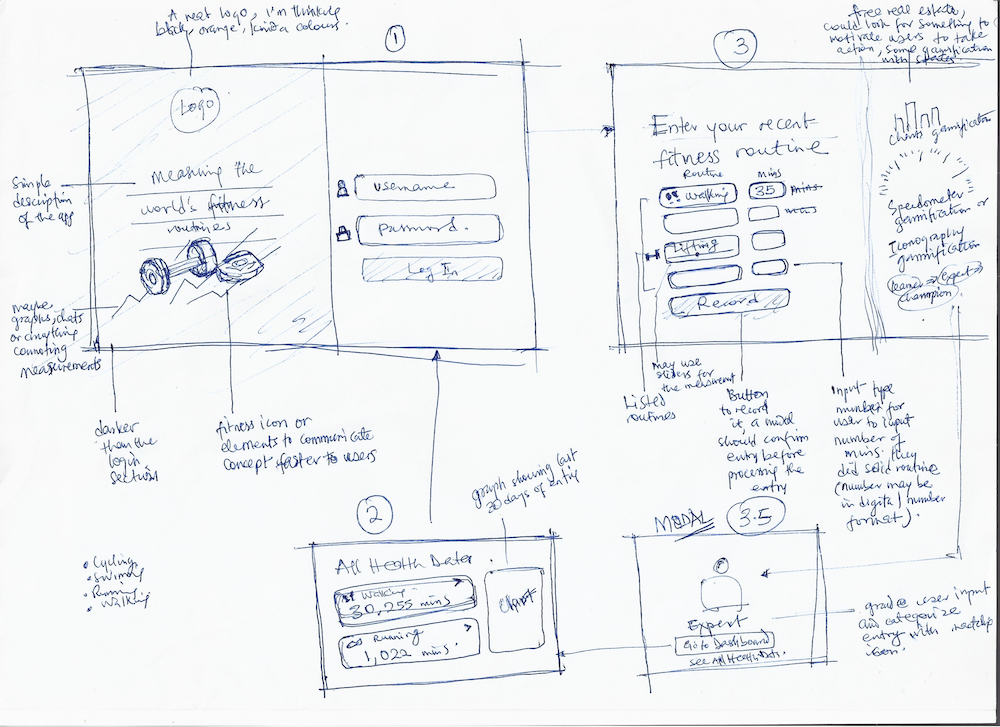 A neat logo, I'm thinking
black, orange, kinda colours.
1
Logo
Measuring the
world's fitness
routines
username
password.
Log In
Simple
description
of the app
maybe
graphs, charts
or anything
connoting
measurements
darker
than the
login
section
fitness icon or
elements to communicate
concept faster to users
3
free real estate,
could look for something to
motivate users to take
action, some gamification
with
Enter your recent
fitness routine
Routine
mins
walking
35
mins
mins
Lifting
Record
Charts gamification
Speedometer
gamification or
Iconography
gamification
Learner → Expert →
Champion
may use
sliders for
the measurement
Listed
routines
Button
to record
it, a modal
should confirm
entry before
processing the
entry
Input type
number for
user to input
number of
mins they
did said routine
(number may be
in digital number
format).
2
graph showing last
30 days of entry
All Health Data
Walking
30,255 mins
Running
1,022 mins
Chart
MODAL
3.5
Expert
Go to Dashboard
see All Health Data.
user input
and categorize
entry with
icon.
Cycling
Swimming
Running
Walking